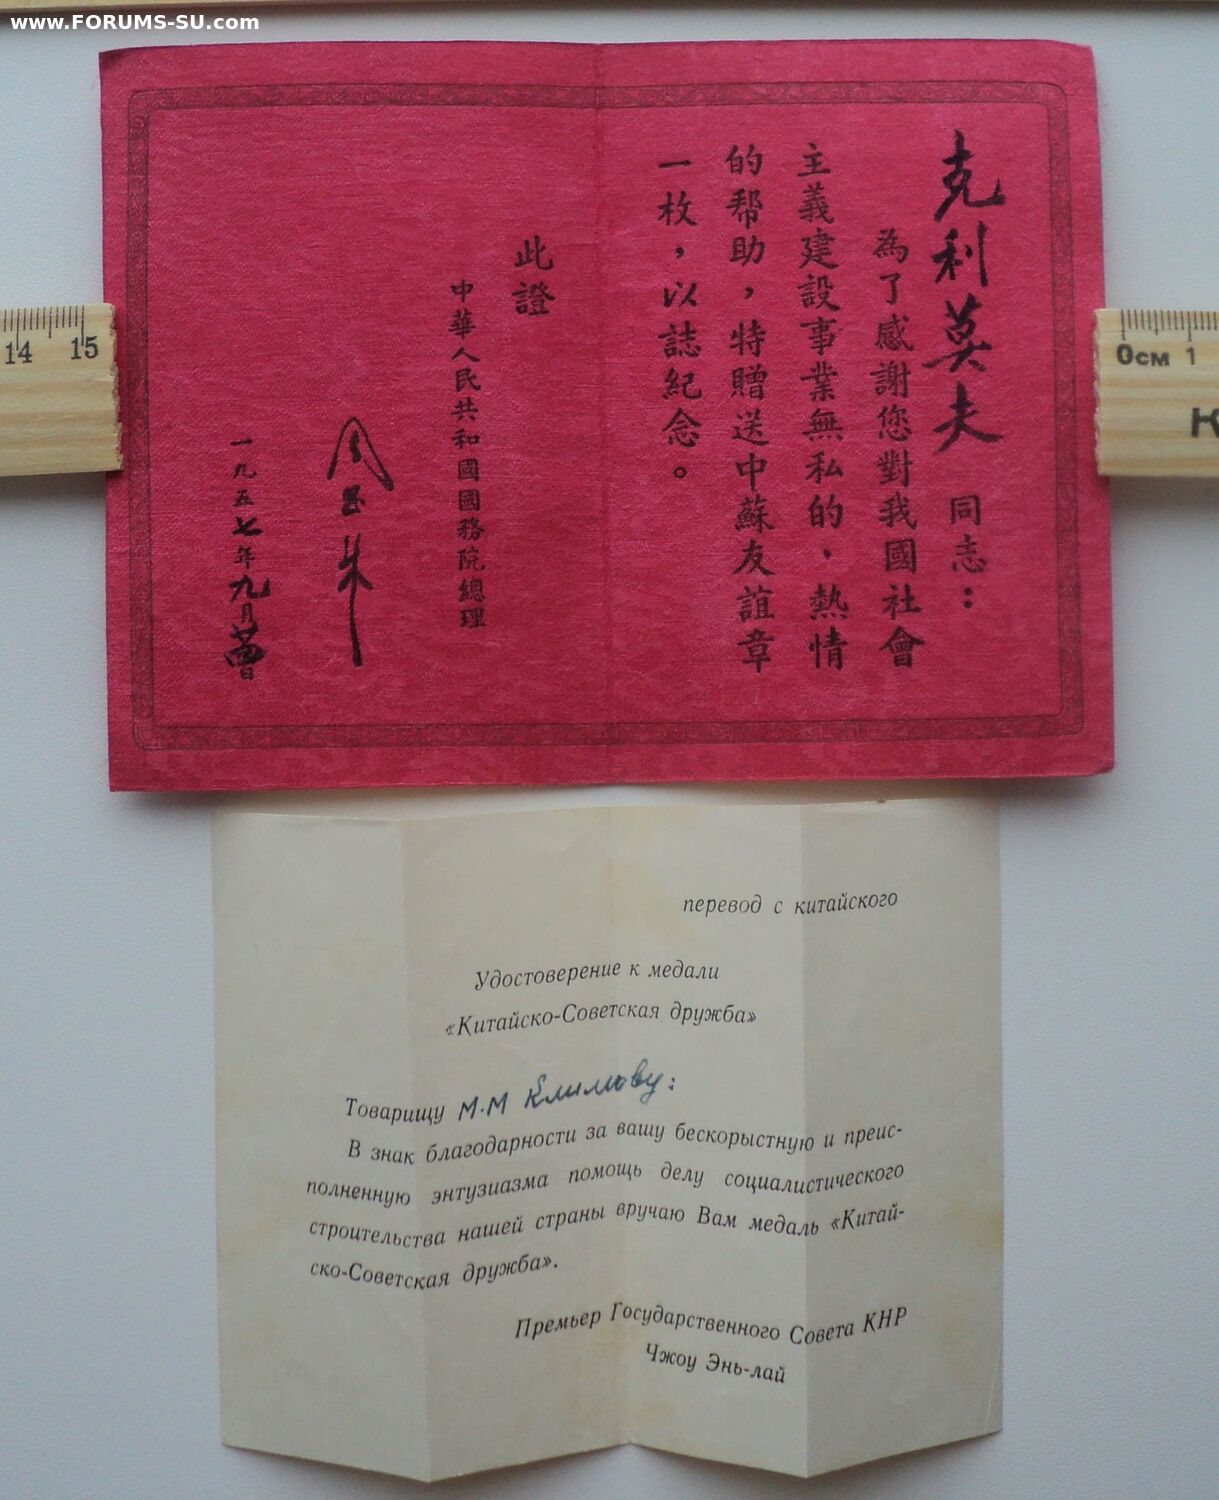 www.FORUMS-SU.com
克利莫夫 同志：
為了感謝您對我國社會
主義建設事業無私的、熱情
的帮助，特贈送中蘇友誼章
一枚，以誌紀念。
此證
中華人民共和國國務院總理
周恩来
一九五七年九月 日
14 15
0см 1
К
перевод с китайского
Удостоверение к медали
«Китайско-Советская дружба»
Товарищу М.М Климову:
В знак благодарности за вашу бескорыстную и преис-
полненную энтузиазма помощь делу социалистического
строительства нашей страны вручаю Вам медаль «Китай-
ско-Советская дружба».
Премьер Государственного Совета КНР
Чжоу Энь-лай